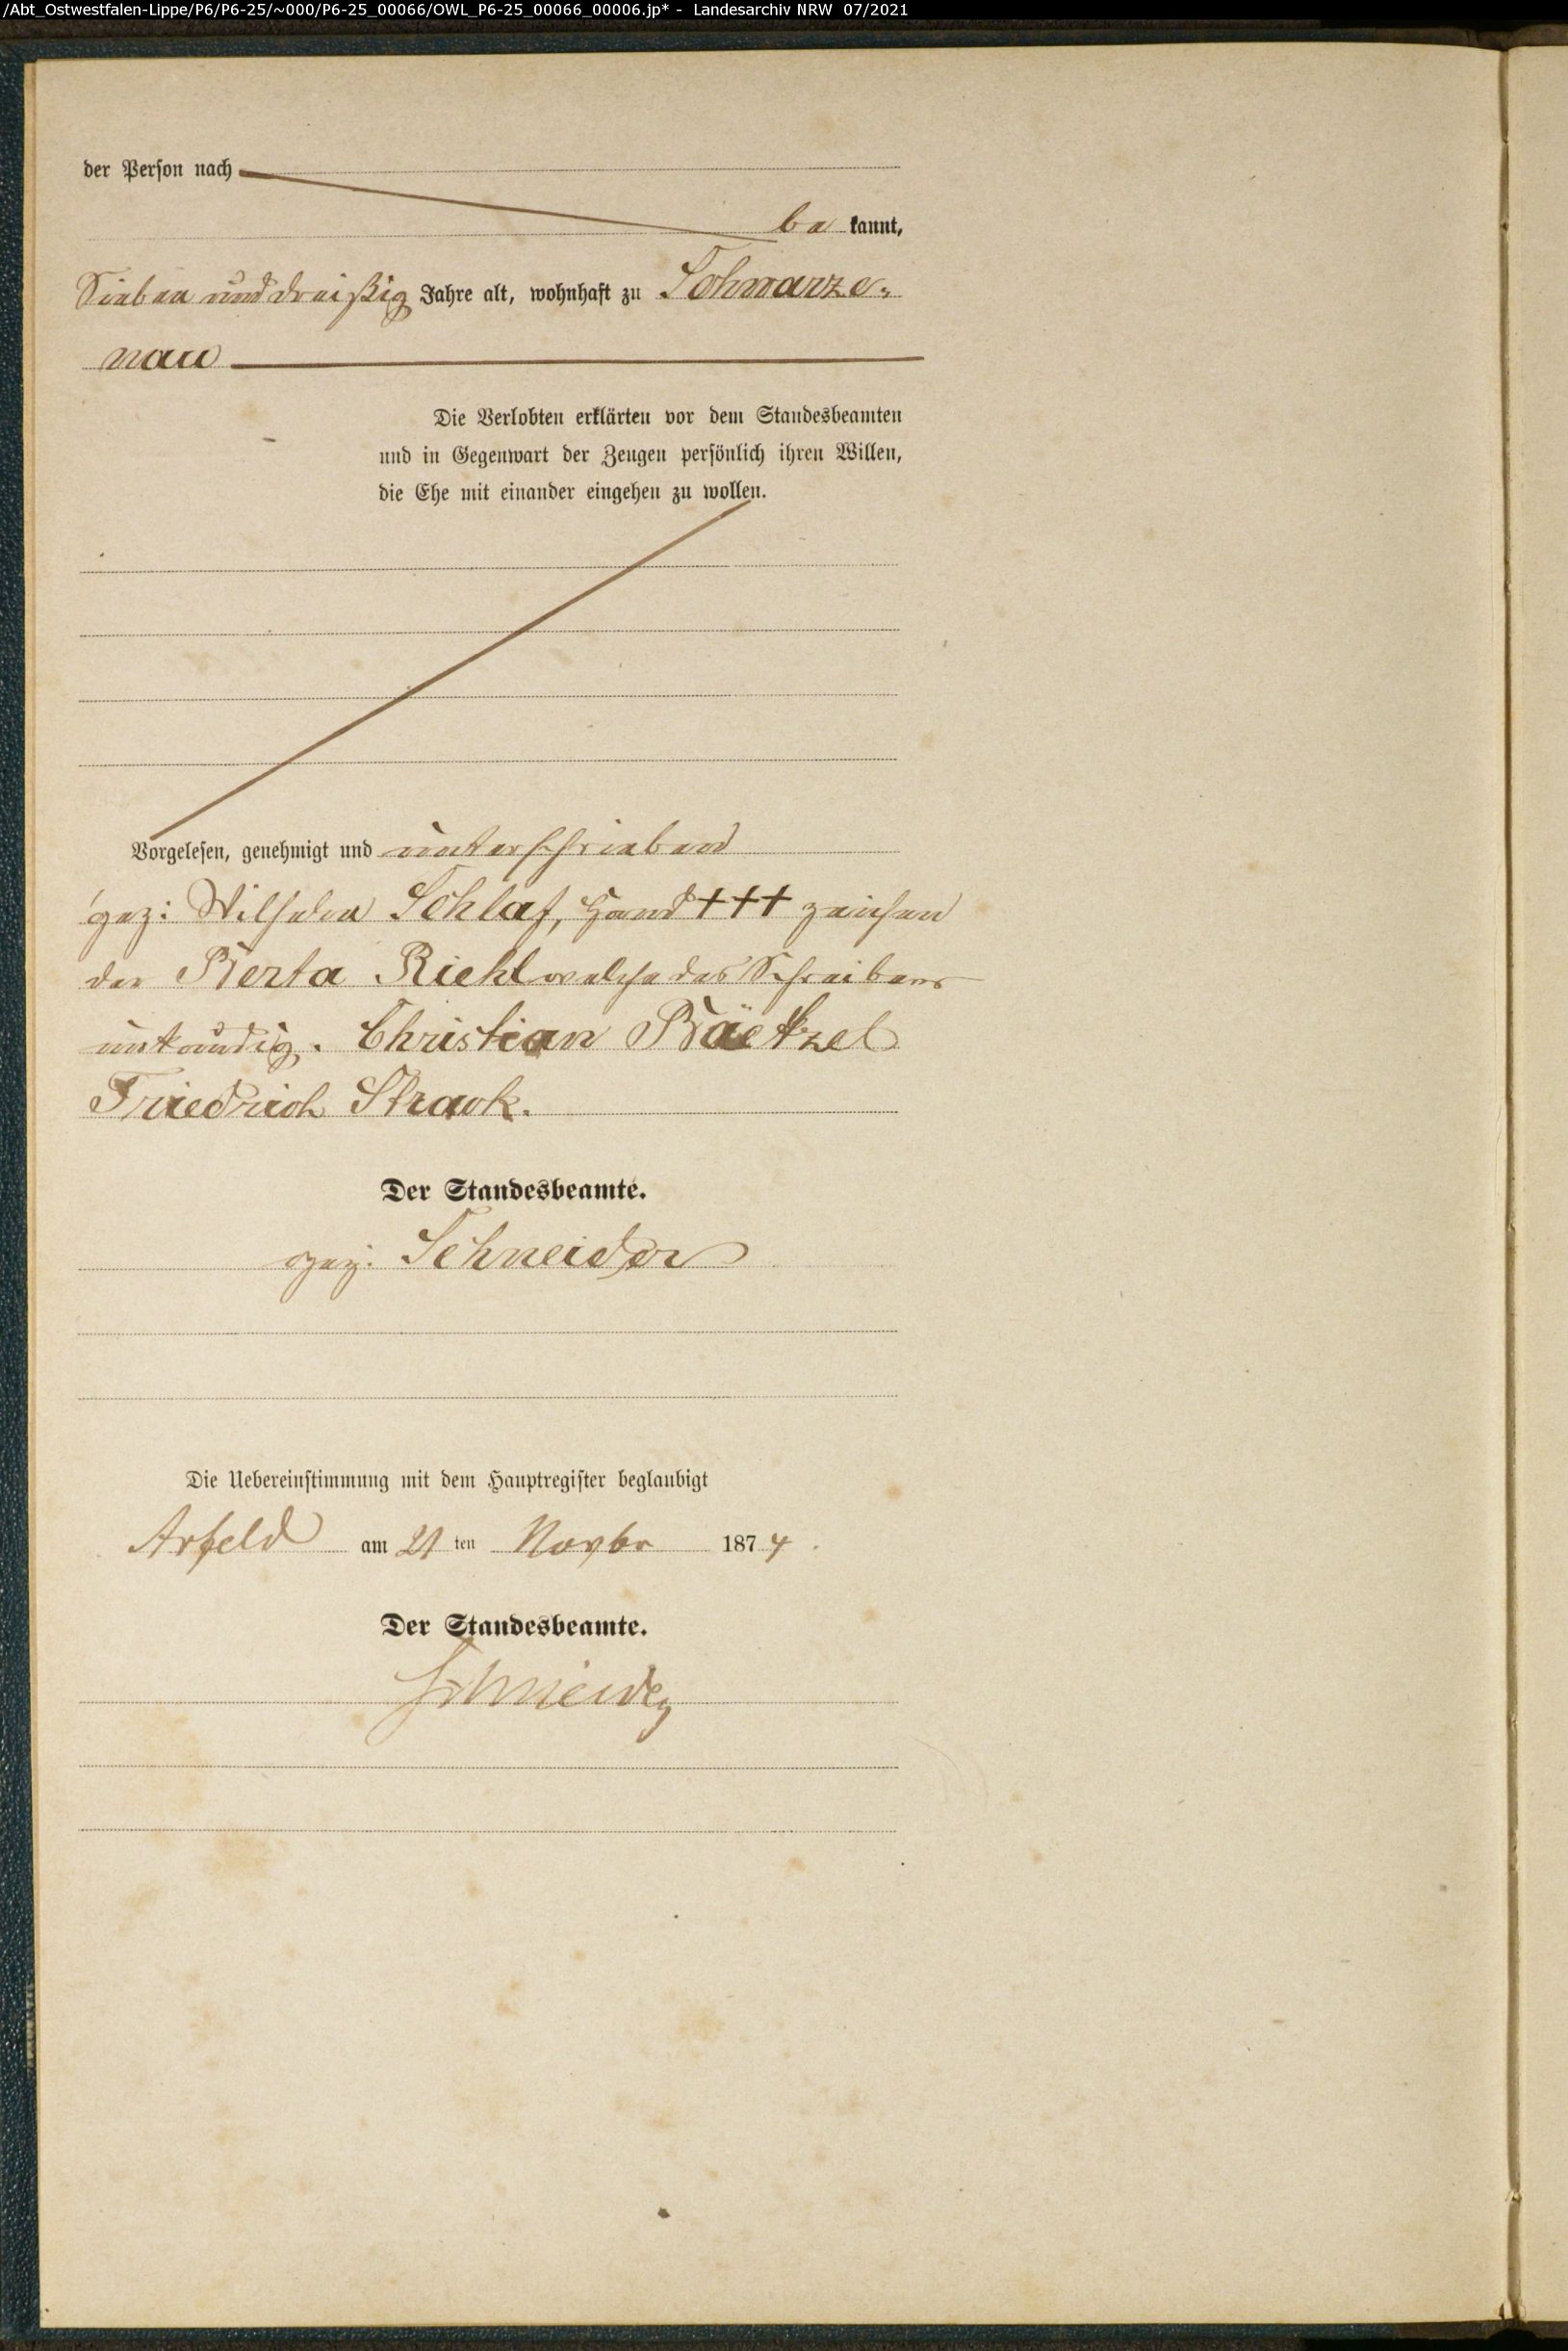 /Abt_Ostwestfalen-Lippe/P6/P6-25/~000/P6-25_00066/OWL_P6-25_00066_00006.jp* - Landesarchiv NRW 07/2021
der Person nach
be kannt,
Sieben und dreißig Jahre alt, wohnhaft zu Schwarze-
nau
Die Verlobten erklärten vor dem Standesbeamten
und in Gegenwart der Zeugen persönlich ihren Willen,
die Ehe mit einander eingehen zu wollen.
Vorgelesen, genehmigt und unterschrieben
gez: Wilhelm Schlaf, Hand +++ zeichen
der Berta Riehl welche des Schreibens
unkundig. Christian
Friedrich Strack.
Der Standesbeamte.
gez. Schneider
Die Uebereinstimmung mit dem Hauptregister beglaubigt
Arfeld am 21 ten Novbr 1874.
Der Standesbeamte.
Schneider